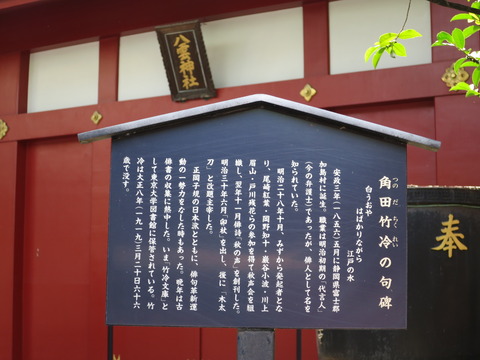 八雲神社
角田竹冷の句碑
つのだちくれい
白うおや
はばかりながら
江戸の水
安政三年(一八五六)五月に静岡県富士郡
加島村に誕生。職業は明治初期の「代言人」
(今の弁護士)であったが、俳人として名を
知られていた。
明治二十八年十月、みずから発起者とな
り、尾崎紅葉・岡野知十・巌谷小波・川上
眉山・戸川残花らの参加を得て秋声会を組
織し、翌年十一月俳誌「秋の声」を創刊した。
明治三十年六月「卯杖」を出し、後に「木太
刀」と改題主宰した。
正岡子規の日本派とともに、俳句革新運
動の一勢力をなした時もあった。晩年は古
俳書の収集に熱中した。いま「竹冷文庫」と
して東京大学図書館に保管されている。竹
冷は大正八年(一九一九)三月二十日六十六
歳で没す。
奉